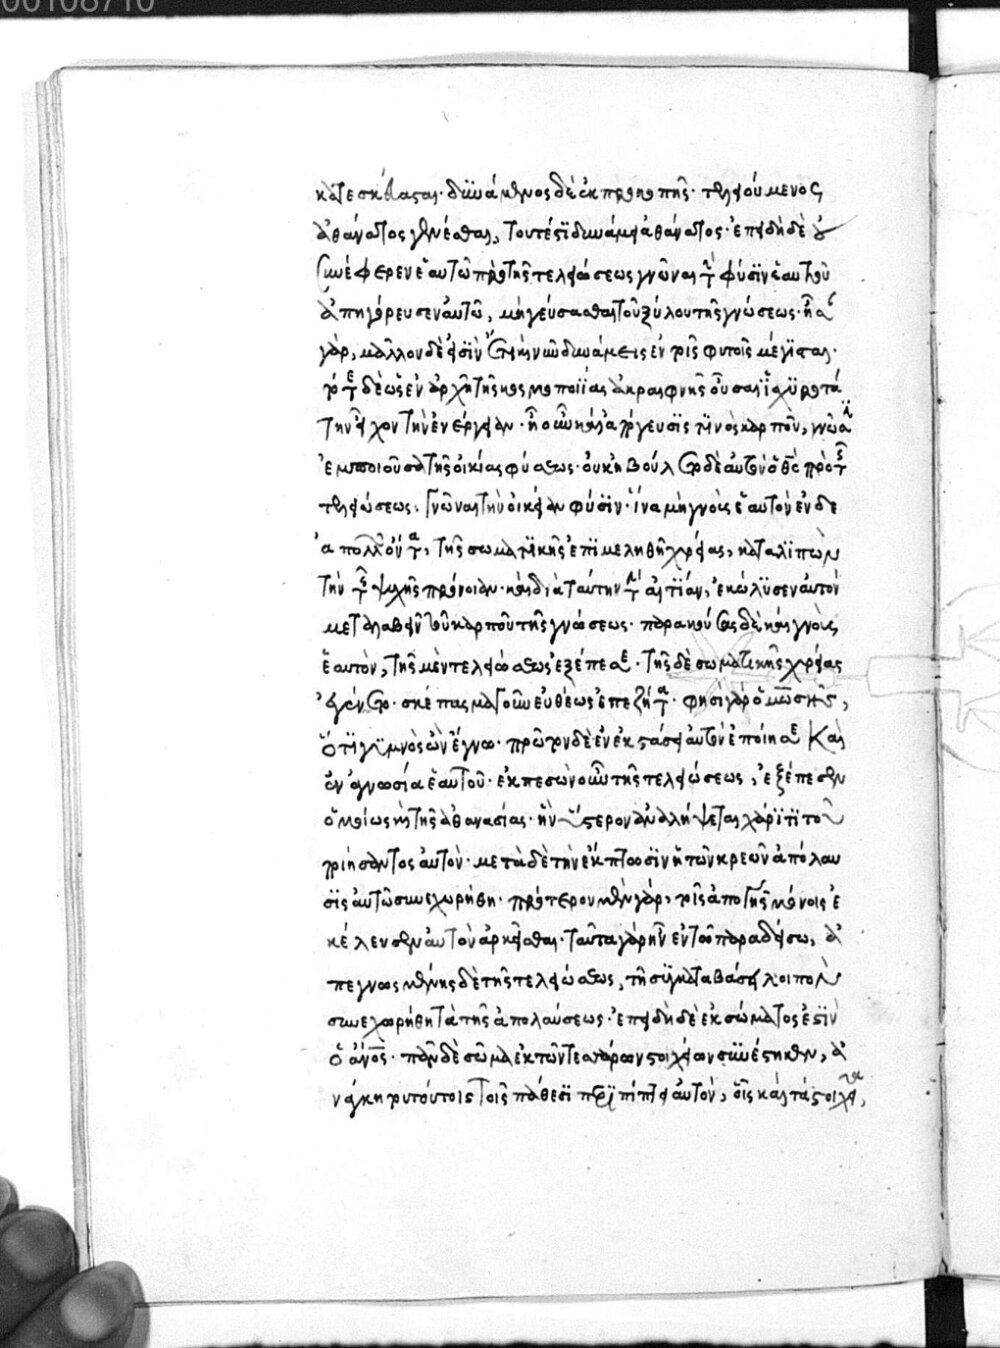 00108710
κατεσκεύασται· δυνάμενος δὲ ἐκ προκοπῆς· τελειούμενος
ἀθάνατος γενέσθαι, τουτέστι δυνάμει ἀθάνατος· ἐπειδὴ δὲ οὐ
συνέφερεν ἑαυτῶ πρὸ τῆς τελειώσεως γνῶναι τὴν φύσιν ἑαυτοῦ
ἀπηγόρευσεν αὐτῶ, μὴ γεύσασθαι τοῦ ξύλου τῆς γνώσεως· ἦσαν
γάρ, μᾶλλον δὲ εἰσὶν ἔτι καὶ νῦν δυνάμεις ἐν τοῖς φυτοῖς μέγισται·
τότε δὲ ὡς ἐν ἀρχῇ τῆς κοσμοποιΐας ἀκραιφνεῖς οὖσαι ἰσχυροτά
την εἶχον τὴν ἐνέργειαν· ἦν οὖν καὶ ἀπόγευσίς τινος καρποῦ, γνῶσιν
ἐμποιοῦσα τῆς οἰκίας φύσεως· οὐκ ἠβούλετο δὲ αὐτὸν ὁ θεὸς πρὸ τῆς
τελειώσεως· γνῶναι τὴν οἰκείαν φύσιν· ἵνα μὴ γνοὺς ἑαυτὸν ἐνδε
ᾶ πολλῶν ὄντα, τῆς σωματικῆς ἐπιμεληθῇ χρείας, καταλιπὼν
τὴν τῆς ψυχῆς πρόνοιαν· καὶ διὰ ταύτην τὴν αἰτίαν, ἐκώλυσεν αὐτὸν
μεταλαβεῖν τοῦ καρποῦ τῆς γνώσεως· παρακούσας δὲ καὶ γνοὺς
ἑαυτὸν, τῆς μὲν τελειώσεως ἐξέπεσε· τῆς δὲ σωματικῆς χρείας
ἐγένετο· σκέπασμα γοῦν εὐθέως ἐπεζήτει· φησὶ γὰρ ὁ μωσῆς,
ὅτι γυμνὸς ὢν ἔγνω· πρῶτον δὲ ἐν ἐκστάσει αὐτὸν ἐποίησε καὶ
ἐν ἀγνωσία ἑαυτοῦ· ἐκπεσὼν οὖν τῆς τελειώσεως, ἐξέπεσεν
ὁμοίως καὶ τῆς ἀθανασίας· ἣν ὕστερον ἀναλήψεται χάριτι τοῦ
ποιήσαντος αὐτὸν· μετὰ δὲ τὴν ἔκπτωσιν ἡ τῶν κρεῶν ἀπόλαυ
σις αὐτῶ συνεχωρήθη· πρότερον μὲν γὰρ, τοῖς ἀπὸ γῆς μόνοις ἐ
κέλευσεν αὐτὸν ἀρκεῖσθαι· ταῦτα γὰρ ἦν ἐν τῶ παραδείσω, ἀ
πεγνωσμένης δὲ τῆς τελειώσεως, τῇ συγκαταβάσει λοιπὸν
συνεχωρήθη τὰ τῆς ἀπολαύσεως· ἐπειδὴ δὲ ἐκ σώματός ἐστιν
ὁ ἄνος· πᾶν δὲ σῶμα ἐκ τῶν τεσσάρων στοιχείων συνέστηκεν, ἀ
νάγκη τούτοις τοῖς πάθεσι περιπίπτειν αὐτὸν, οἷς καὶ τὰ στοιχεῖα,